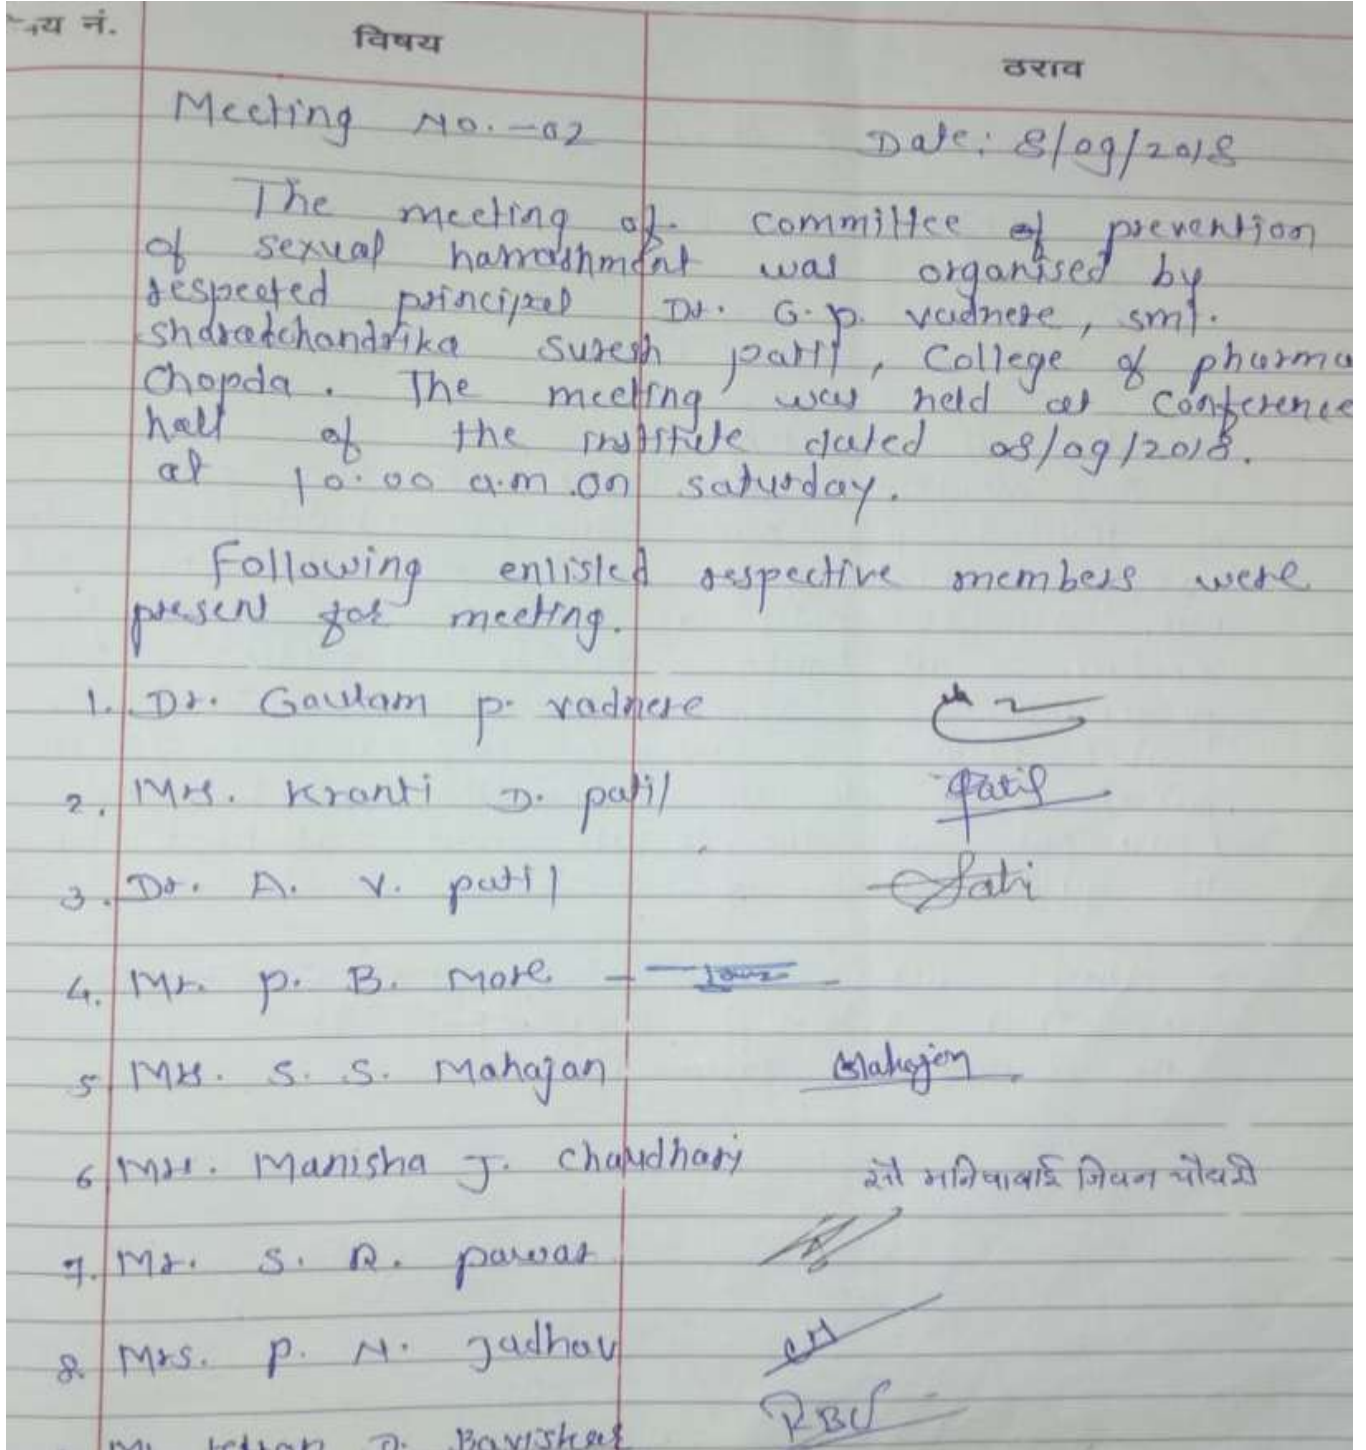 विषय नं.
विषय
ठराव
Meeting No.-02
Date: 8/09/2018
The meeting of. committee of prevention
of sexual harrashment was organised by
respected principal Dr. G. p. vadnere, smt.
sharadchandrika suresh patil, College of pharma
Chopda. The meeting was held at Conference
hall of the institute dated 08/09/2018.
at 10.00 a.m on saturday.
Following enlisted respective members were
present for meeting.
1. Dr. Gautam p. vadnere
2. Mrs. Kranti D. patil Patil
3. Dr. A. V. patil
4. Mr. p. B. More
5 Mrs. S. S. Mahajan Mahajan
6 Mrs. Manisha J. Chaudhari सौ मनिषाबाई जिवन चौधरी
7. Mr. S. R. pawar
8. Mrs. P. N. Jadhav
D. Baviskar RBC